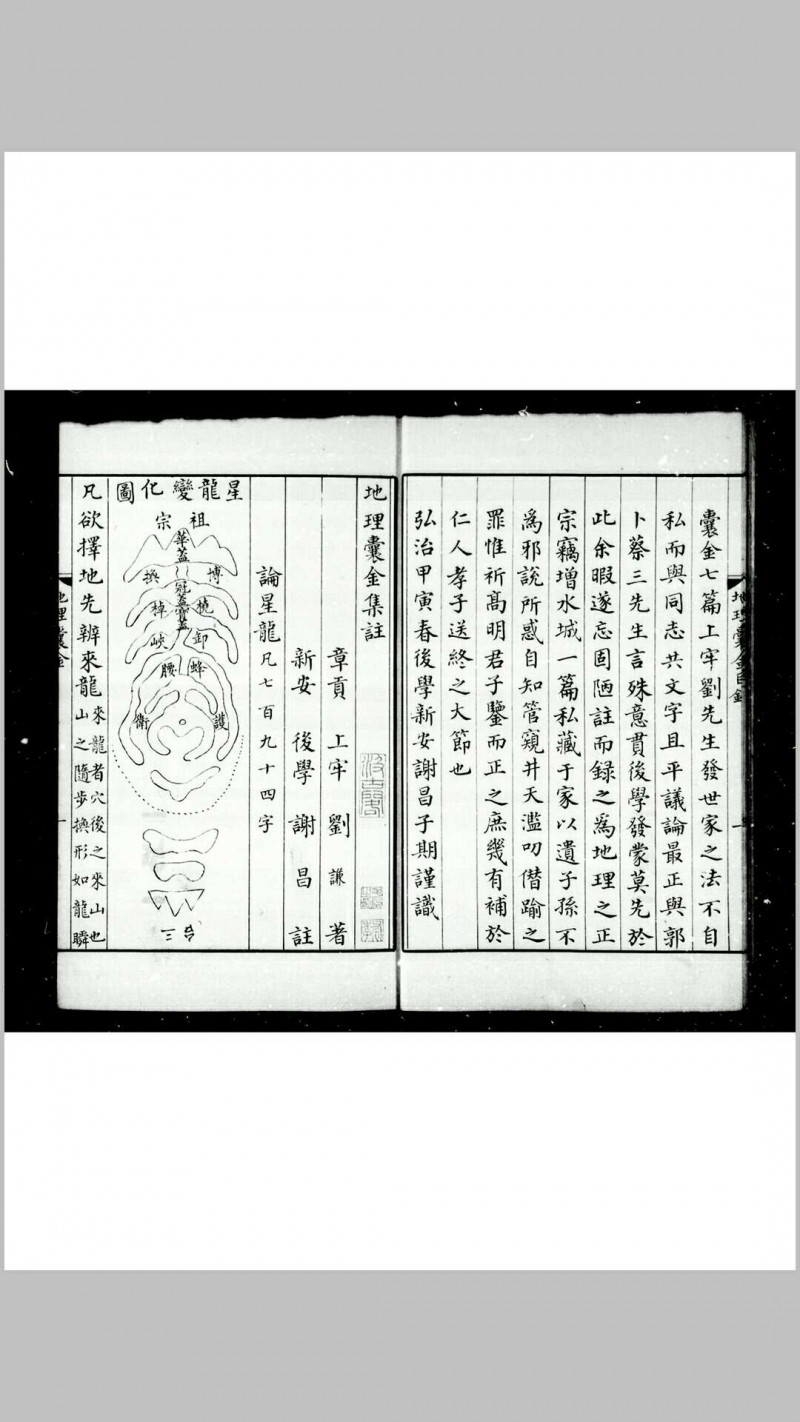 囊金七篇上牢劉先生發世家之法不自
私而與同志共文字且平議論最正與郭
卜蔡三先生言殊意貫後學發蒙莫先於
此余暇遂忘固陋註而録之為地理之正
宗竊增水城一篇私藏于家以遺子孫不
為邪説所惑自知管窺井天濫叨僭踰之
罪惟祈髙明君子鑒而正之庶幾有補於
仁人孝子送終之大節也
弘治甲寅春後學新安謝昌子期謹識
地理囊金集註
章貢上牢劉謙著
新安後學謝昌註
論星龍凡七百九十四字
星龍變化圖
祖宗
華蓋
博換
冠蓋
橈棹
寶蓋
卸峽
蜂腰
護衛
三台
凡欲擇地先辨來龍來龍者穴後之來山也
山之隨步換形如龍瞬
地理囊金
一